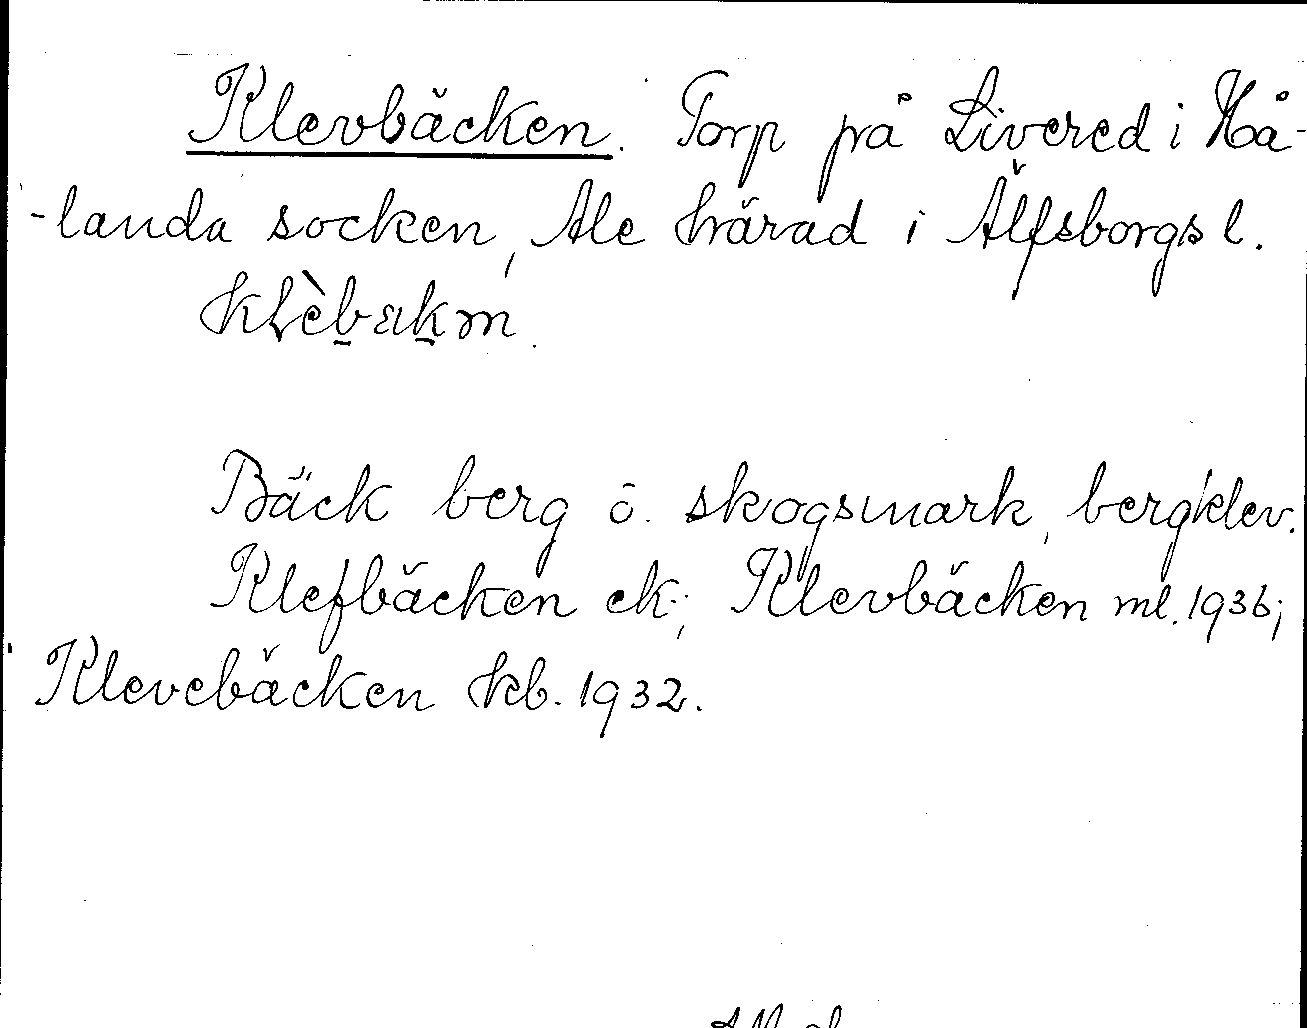 Klevbäcken. Torp på Livered i Hå-
-landa socken, Ale härad i Älfsborgs l.
klèbäkm
Bäck berg o. skogsmark, bergklev.
Klefbäcken ek.; Klevbäcken ml. 1936;
Klevebäcken kb. 1932.